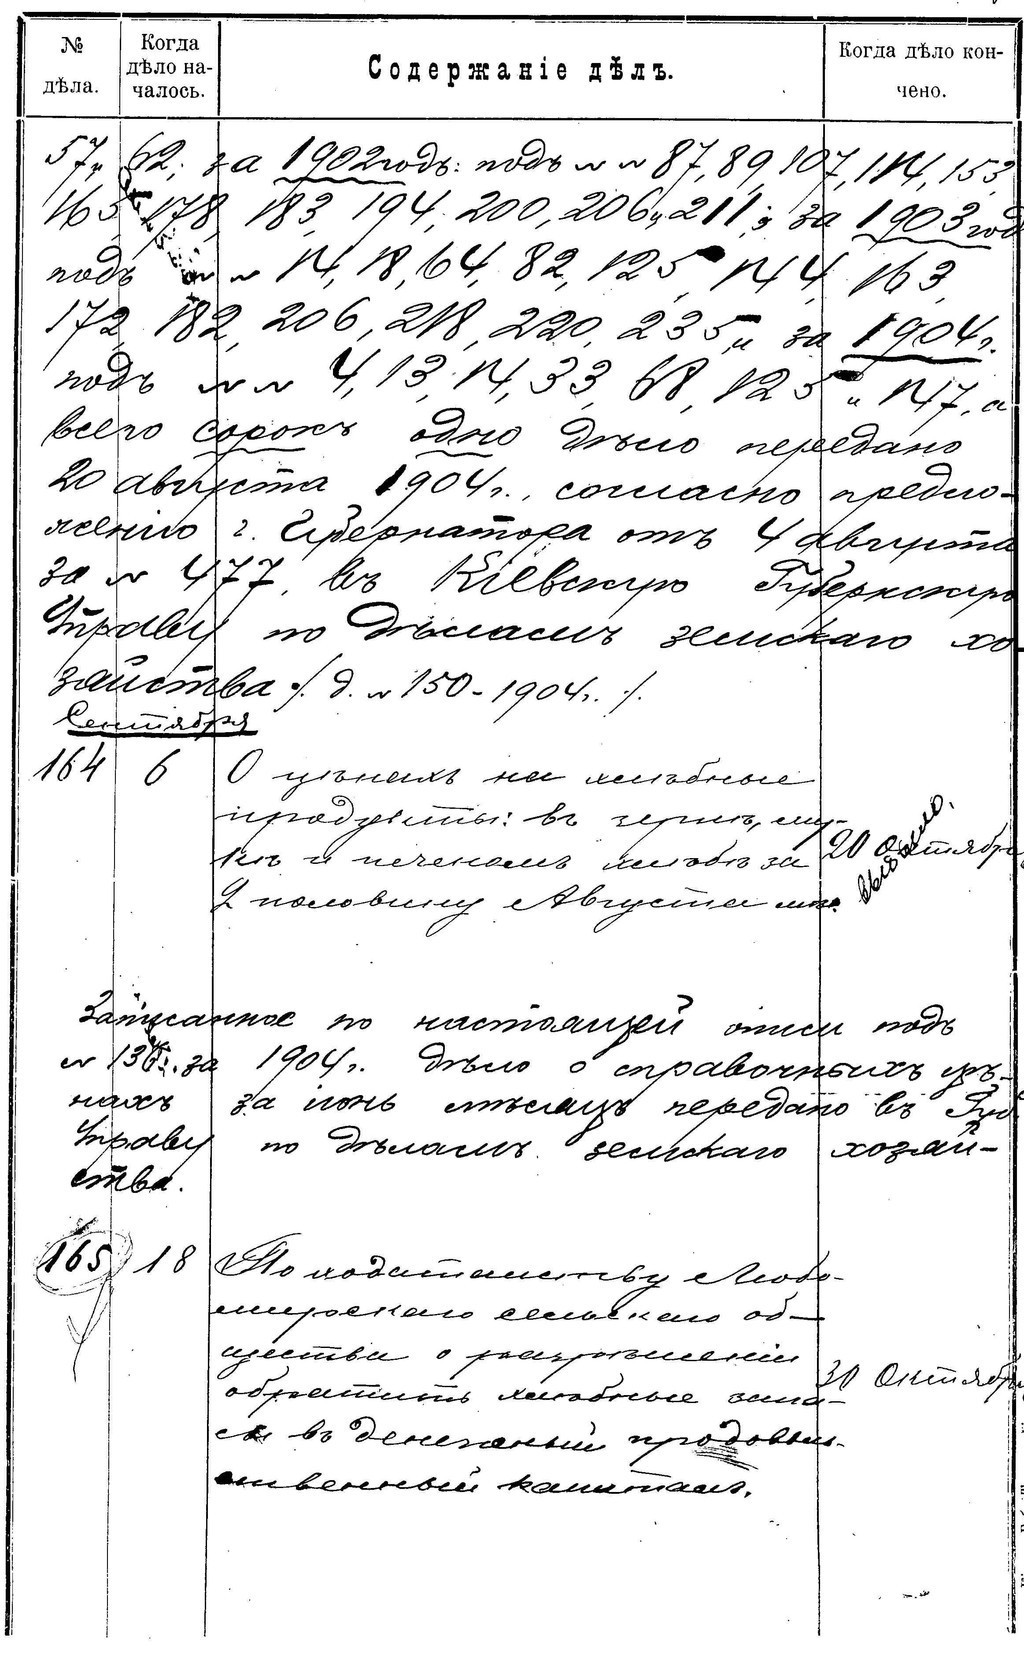 № дѣла.
Когда дѣло на-чалось.
Содержаніе дѣлъ.
Когда дѣло кон-чено.
57, 62, за 1902 годъ: подъ №№ 87, 89, 107, 114, 153,
165, 178, 183, 194, 200, 206 и 211; за 1903 год
подъ №№ 14, 18, 64, 82, 125, 144, 163,
172, 182, 206, 218, 220, 235, и за 1904 г.
подъ №№ 4, 13, 14, 33, 68, 125 и 147, а
всего сорокъ одно дѣло передано
20 августа 1904 г., согласно предло-
женію г. Губернатора отъ 4 августа
за № 477, въ Кіевскую Губернскую
Управу по дѣламъ земскаго хо-
зяйства ./. д. № 150 - 1904 г. ./.
Сентября
164 6 О цѣнахъ на хлѣбные
продукты: въ зернѣ, му-
кѣ и печеномъ хлѣбѣ за
2 половину Августа мѣс.
20 Октября
Записанное по настоящей описи подъ
№ 136, за 1904 г. дѣло о справочныхъ цѣ-
нахъ за іюнь мѣсяцъ передано въ Губ
Управу по дѣламъ земскаго хозяй-
ства.
165 18 По ходатайству Любо-
мирскаго сельскаго об-
щества о разрѣшеніи
обратить хлѣбные запа-
сы въ денежный продоволь-
ственный капиталъ.
30 Октября